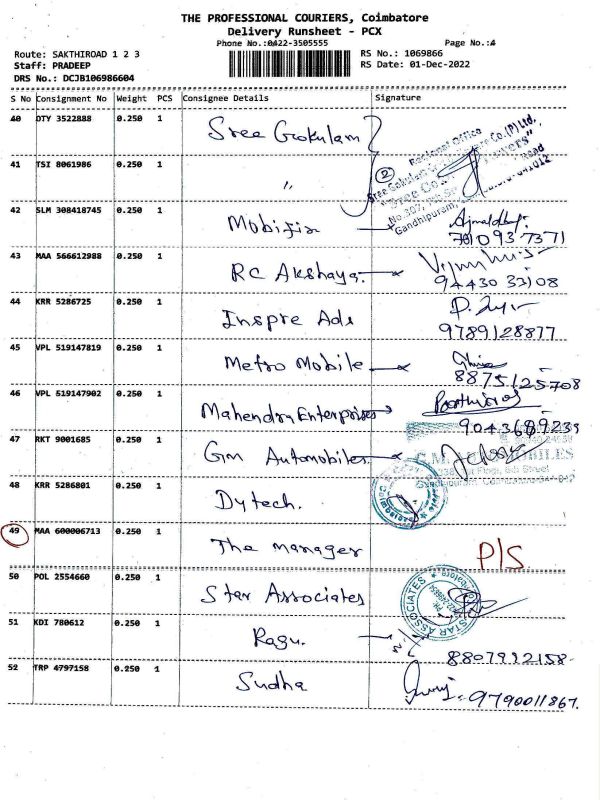 THE PROFESSIONAL COURIERS, Coimbatore
Delivery Runsheet - PCX
Phone No.:0422-3505555 Page No.:4
Route: SAKTHIROAD 1 2 3 RS No.: 1069866
Staff: PRADEEP RS Date: 01-Dec-2022
DRS No.: DCJB106986604
S No Consignment No Weight PCS Consignee Details Signature
40 DTY 3522888 0.250 1 Sree Gokulam
Regional Office
2
41 TSI 8061986 0.250 1 "
Gandhipuram,
42 SLM 308418745 0.250 1 Mobifix
43 MAA 566612988 0.250 1 RC Akshaya.
94430 33108
44 KRR 5286725 0.250 1 Inspre Ads
9789128877
45 VPL 519147819 0.250 1 Metro Mobile
88751 25708
46 VPL 519147902 0.250 1 Mahendra Enterprises
9043689239
47 RKT 9001685 0.250 1 Gm Automobiles
48 KRR 5286801 0.250 1 Dytech.
49 MAA 600006713 0.250 1 The manager P/S
50 POL 2554660 0.250 1 Star Associates
STAR ASSOCIATES
51 KDI 780612 0.250 1 Ragu.
8807992158
52 TRP 4797158 0.250 1 Sudha
9790011867.